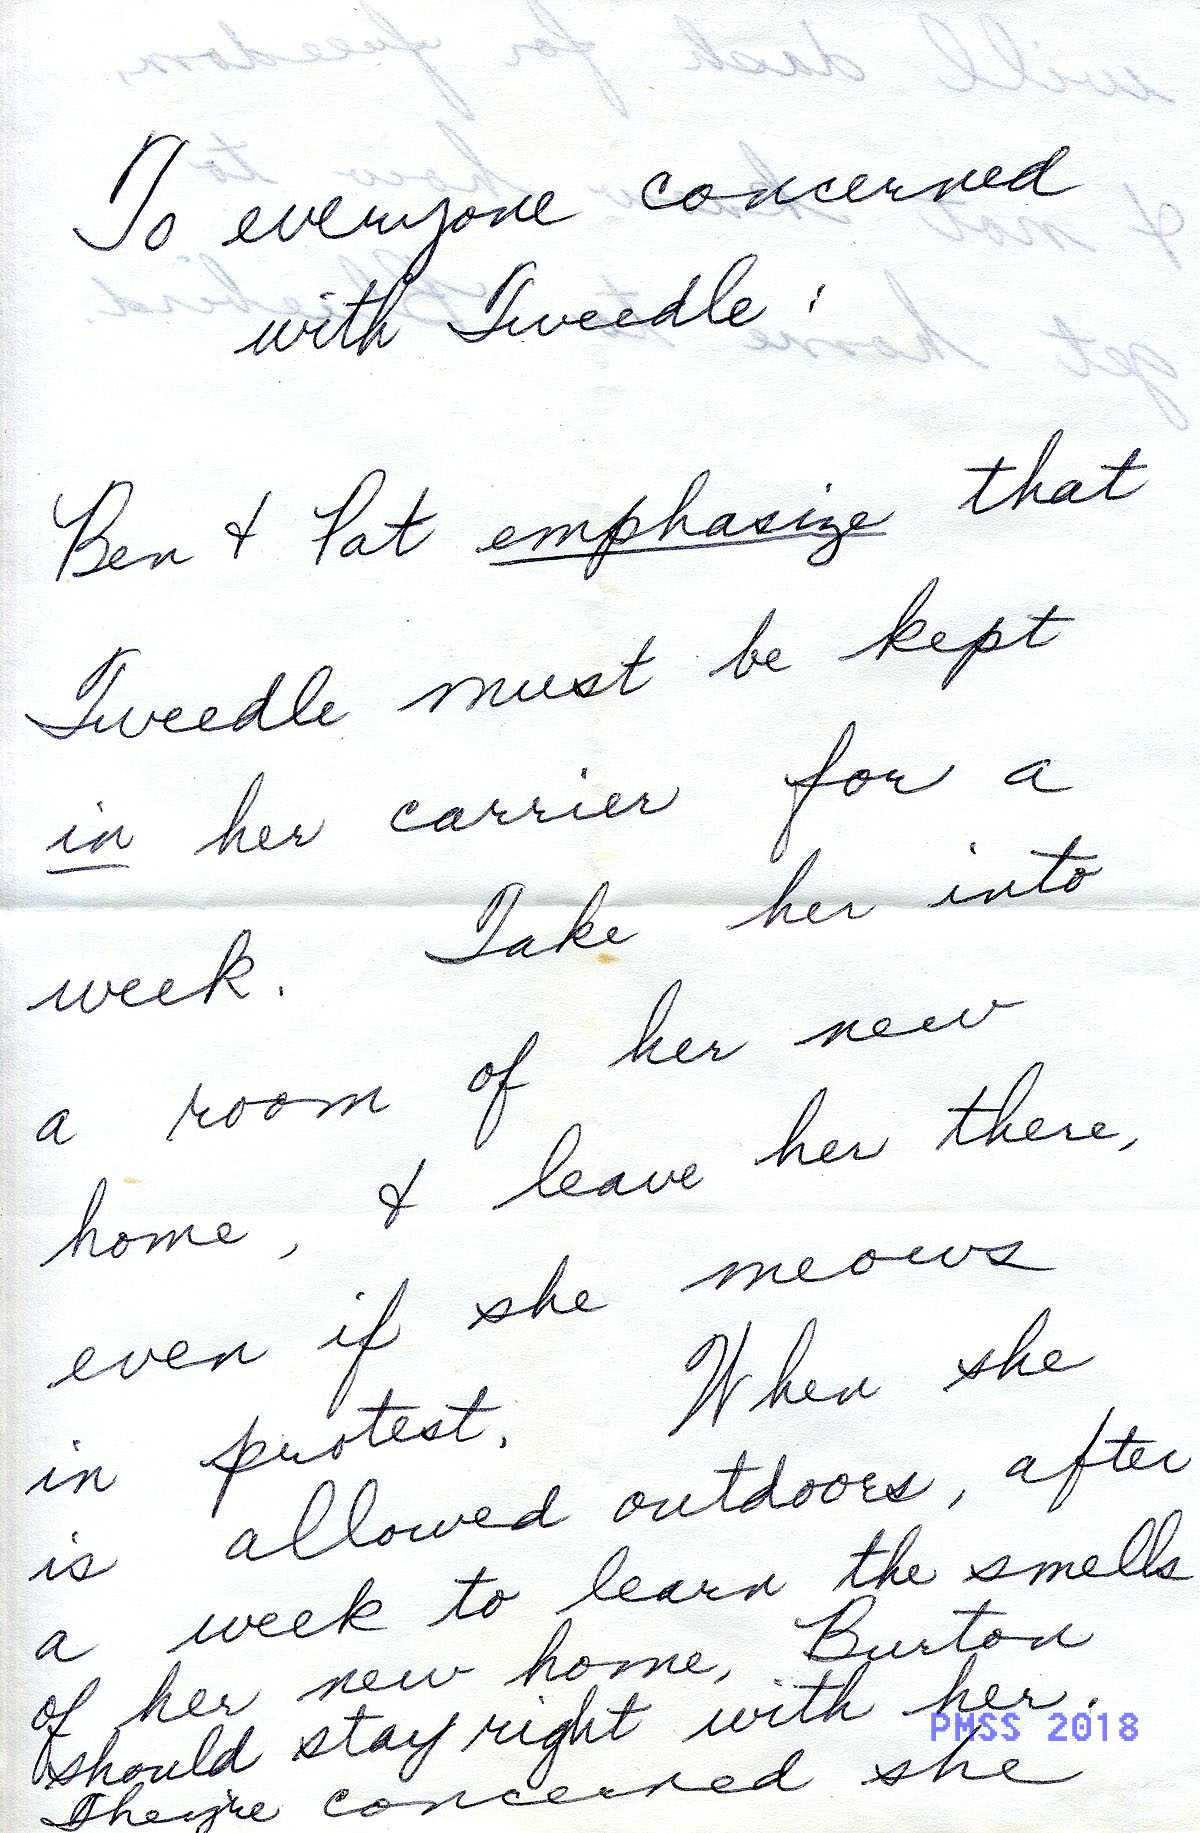 To everyone concerned
with Tweedle:
Ben & Pat emphasize that
Tweedle must be kept
in her carrier for a
week. Take her into
a room of her new
home, & leave her there,
even if she meows
in protest. When she
is allowed outdoors, after
a week to learn the smells
of her new home, Burton
should stay right with her.
They're concerned she
PMSS 2018
will dash for freedom,
& not know how to
get home to Bluebird.